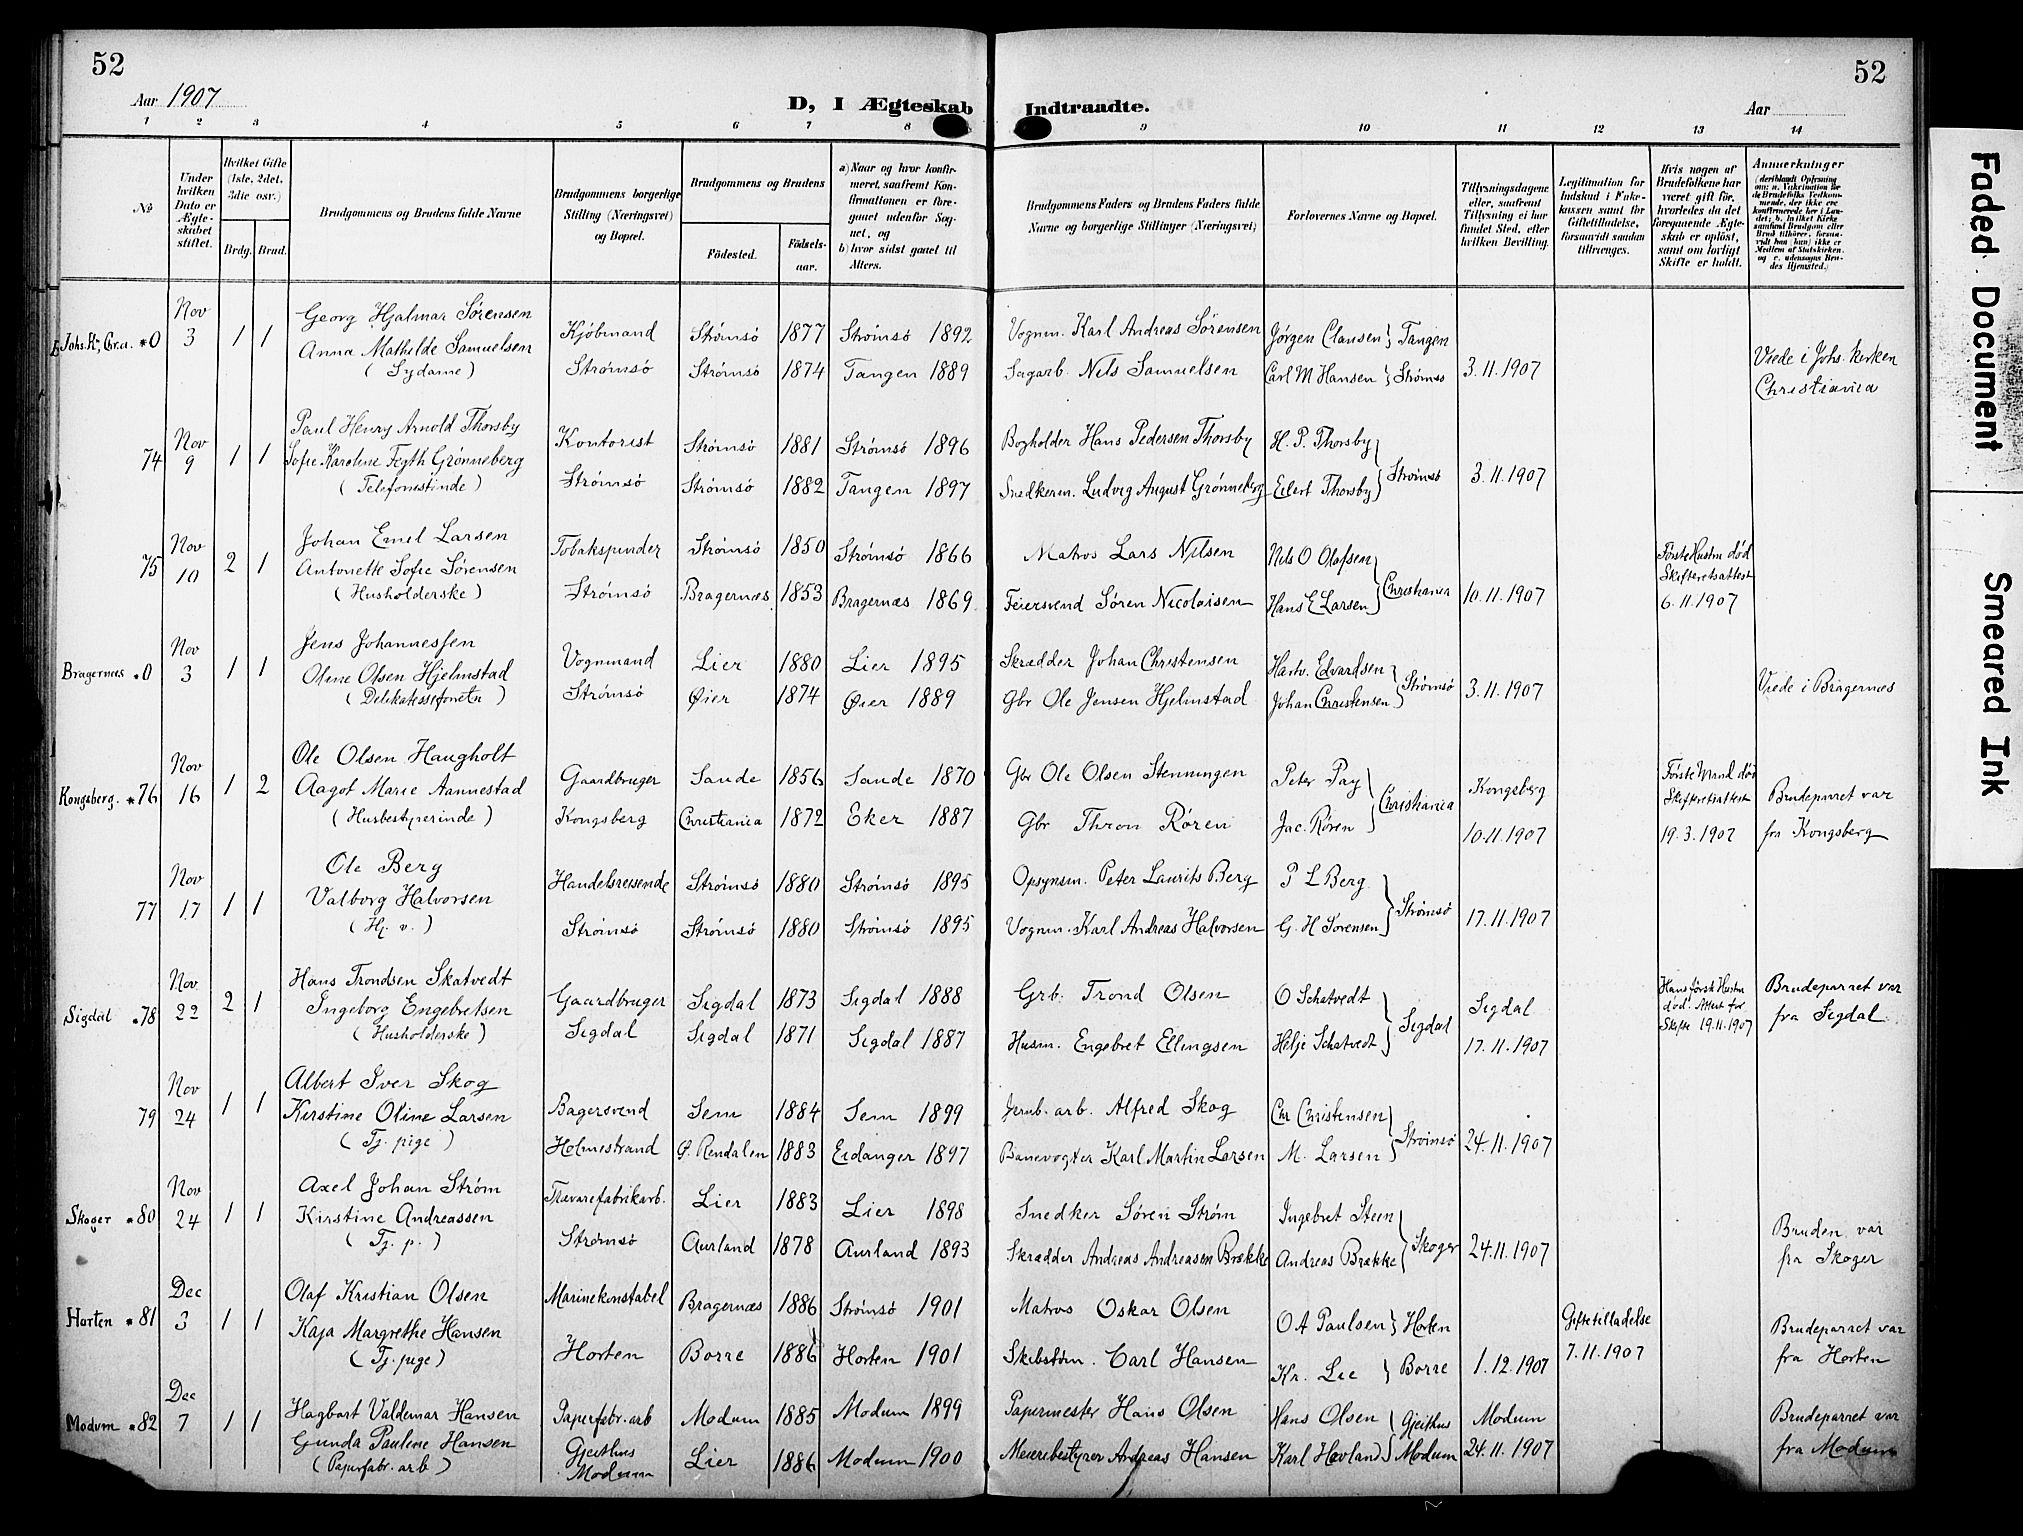 52
Aar 1907
D, I Ægteskab Indtraadte.
Aar
52
1 2 3 4 5 6 7 8 9 10 11 12 13 14
No
Under hvilken Dato er Ægteskabet stiftet.
Hvilket Gifte (1ste, 2det, 3die osv.)
Brdg. Brud.
Brudgommens og Brudens fulde Navne
Brudgommens borgerlige Stilling (Næringsvei) og Bopæl.
Brudgommens og Brudens
Födested.
Födsels-aar.
a) Naar og hvor konfirmeret, saafremt Konfirmationen er foregaaet udenfor Sognet, og
b) hvor sidst gaaet til Alters.
Brudgommens Faders og Brudens Faders fulde Navne og borgerlige Stillinger (Næringsvei)
Forlovernes Navne og Bopæl.
Tillysningsdagene eller, saafremt Tillysning ei har fundet Sted, efter hvilken Bevilling.
Legitimation for Indskud i Enkekassen samt for Giftetilladelse, forsaavidt saadan tiltrænges.
Hvis nogen af Brudefolkene har været gift før, hvorledes da det foregaaende Ægteskab er oplöst, samt om lovligt Skifte er holdt.
Anmerkninger
Johs. K., Chr.a. *0 Nov 3 1 1 Georg Hjalmar Sørensen
Anna Mathilde Samuelsen
(Sydame)
Kjöbmand Strømsö 1877 Strømsö 1892 Vognm. Karl Andreas Sörensen Jørgen Clausen } Tangen
Strømsö Strømsö 1874 Tangen 1889 Sagarb. Nils Samuelsen Carl M Hansen } Strømsö 3.11.1907 Viede i Johs. kirken Christiania
74 Nov 9 1 1 Paul Henry Arnold Thorsby
Sofie Karoline Fegth Grønneberg
(Telefonistinde)
Kontorist Strømsö 1881 Strømsö 1896 Bogholder Hans Pedersen Thorsby H. P. Thorsby
Strømsö Strømsö 1882 Tangen 1897 Snedkerm. Ludvig August Grønneberg Eilert Thorsby Strømsö 3.11.1907
75 Nov 10 2 1 Johan Emil Larsen
Antonette Sofie Sörensen
(Husholderske)
Tobakspinder Strømsö 1850 Strømsö 1866 Matros Lars Nilsen Nils O Olafsen
Strømsö Bragernæs 1853 Bragernæs 1869 Feiersvend Sören Nicolaisen Hans E Larsen Christiania 10.11.1907 Første Hustru död Skifteretsattest 6.11.1907
Bragernæs *0 Nov 3 1 1 Jens Johannessen
Oline Olsen Hjelmstad
(Delikatesseforretn)
Vognmand Lier 1880 Lier 1895 Skrædder Johan Christensen Hartv. Edvardsen
Strømsö Øier 1874 Øier 1889 Gbr Ole Jensen Hjelmstad Johan Christensen Strømsö 3.11.1907 Viede i Bragernæs
Kongsberg. *76 Nov 16 1 2 Ole Olsen Haugholt
Aagot Marie Aannestad
(Husbestyrerinde)
Gaardbruger Sande 1856 Sande 1870 Gbr Ole Olsen Stenningen Peter Pay
Kongsberg Christiania 1872 Eker 1887 Gbr Thron Røren Jac. Røren Christiania Kongsberg 10.11.1907 Første Mand död Skifteretsattest 19.3.1907 Brudeparret var fra Kongsberg
77 Nov 17 1 1 Ole Berg
Valborg Halvorsen
(Hj. v.)
Handelsreisende Strømsö 1880 Strømsö 1895 Opsynsm. Peter Laurits Berg P L Berg
Strømsö Strømsö 1880 Strømsö 1895 Vognm. Karl Andreas Halvorsen G. H Sorensen Strømsö 17.11.1907
Sigdal *78 Nov 22 2 1 Hans Trondsen Skatvedt
Ingeborg Engebretsen
(Husholderske)
Gaardbruger Sigdal 1873 Sigdal 1888 Grb. Trond Olsen O Schatvedt
Sigdal Sigdal 1871 Sigdal 1887 Husm. Engebret Ellingsen Helje Schatvedt Sigdal Sigdal 17.11.1907 Hans først Hustru död. Attest for Skifte 19.11.1907 Brudeparret var fra Sigdal
79 Nov 24 1 1 Albert Iver Skog
Kirstine Oline Larsen
(Tj. pige)
Bagersvend Sem 1884 Sem 1899 Jernb. arb. Alfred Skog Chr Christensen
Holmestrand Ø. Rendalen 1883 Eidanger 1897 Banevogter Karl Martin Larsen M. Larsen Strømsö 24.11.1907
Skoger *80 Nov 24 1 1 Axel Johan Strøm
Kirstine Andreassen
(Tj. p.)
Trævarefabrikarb. Lier 1883 Lier 1898 Snedker Sören Strøm Ingebret Steen
Strømsö Aurland 1878 Aurland 1893 Skrædder Andreas Andreasen Brække Andreas Brække Skoger 24.11.1907 Bruden var fra Skoger
Horten *81 Dec 3 1 1 Olaf Kristian Olsen
Kaja Margrethe Hansen
(Tj. pige)
Marinekonstabel Bragernæs 1886 Strømsö 1901 Matros Oskar Olsen O A Paulsen } Horten
Horten Borre 1886 Horten 1901 Skibstøm. Carl Hansen Kr. Lie } Borre 1.12.1907 Giftetilladelse 7.11.1907 Brudeparret var fra Horten
Modum *82 Dec 7 1 1 Hagbart Valdemar Hansen
Gunda Pauline Hansen
(Papirfabr. arb)
Papirfabr. arb Modum 1885 Modum 1899 Papermester Hans Olsen Hans Olsen Gjeithus
Gjeithus Modum Lier 1886 Modum 1900 Meieribestyrer Andreas Hansen Karl Hovland Modum Modum 24.11.1907 Brudeparret var fra Modum
Faded Document
Smeared Ink